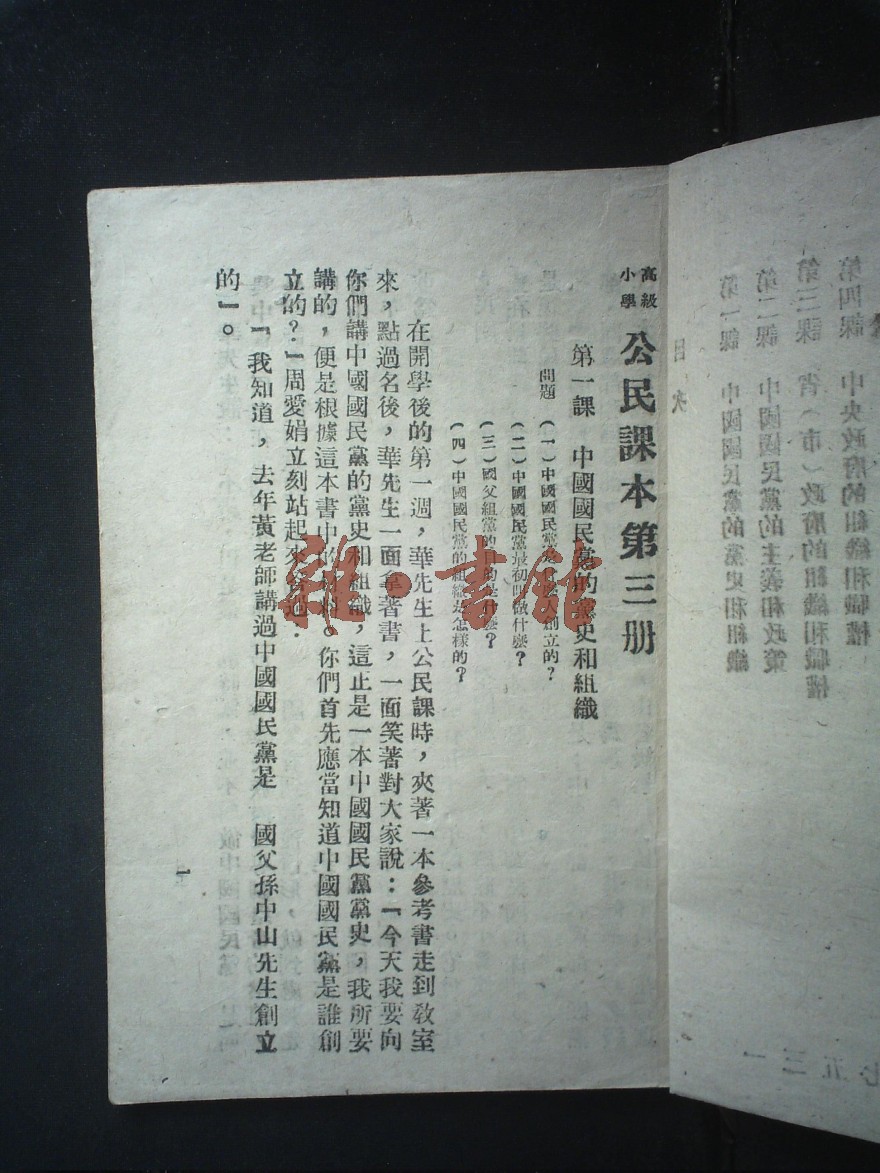 目次
第一課 中國國民黨的黨史和組織
第二課 中國國民黨的主義和政策
第三課 省（市）政府的組織和職權
第四課 中央政府的組織和職權
一
三
五
七
高級
小學
公民課本第三册
第一課 中國國民黨的黨史和組織
問題 (一)中國國民黨是什麼人創立的?
(二)中國國民黨最初叫做什麼?
(三)國父組黨的目的是什麼?
(四)中國國民黨的組織是怎樣的?
在開學後的第一週，華先生上公民課時，夾著一本參考書走到敎室
來，點過名後，華先生一面拿著書，一面笑著對大家說：「今天我要向
你們講中國國民黨的黨史和組織，這正是一本中國國民黨黨史，我所要
講的，便是根據這本書中的材料。你們首先應當知道中國國民黨是誰創
立的？」周愛娟立刻站起來答道：
「我知道，去年黃老師講過中國國民黨是 國父孫中山先生創立
的」。
1
雜·書館